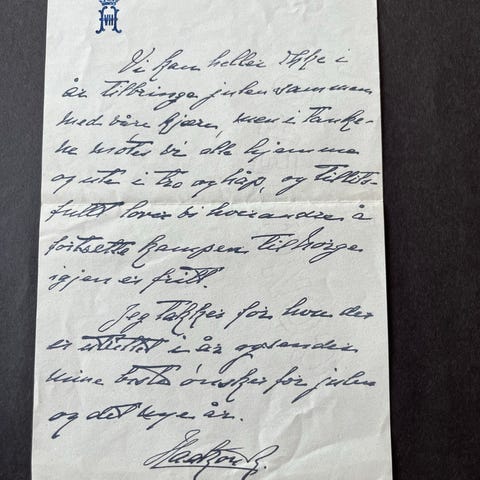 H VII
Vi kan heller ikke i
år tilbringe julen sammen
med våre kjære, men i tanke-
ne møtes vi alle hjemme
og ute i tro og håp, og tillits-
fullt lover vi hverandre å
fortsette kampen til Norge
igjen er fritt.
Jeg takker for hva der
er utrettet i år og sender
mine beste ønsker for julen
og det nye år.
Haakon R.